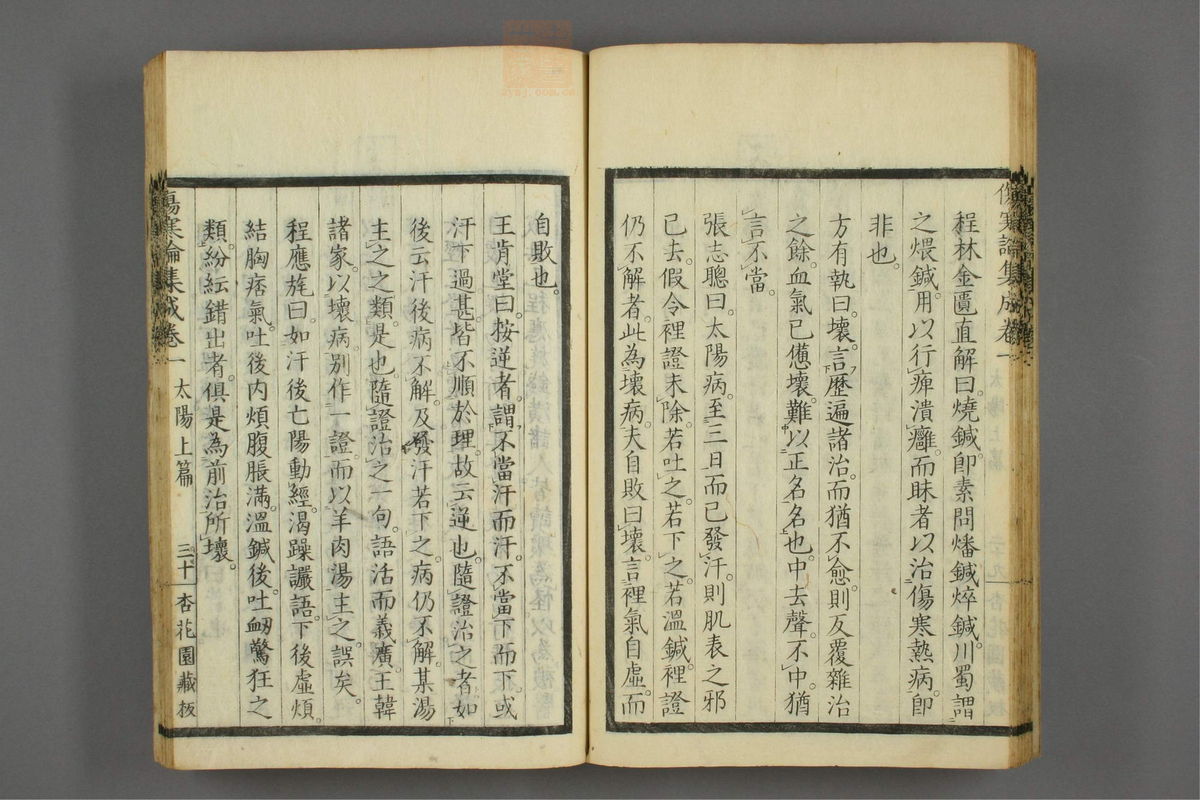 程林金匱直解曰。燒鍼。卽素問燔鍼焠鍼。川蜀謂
之煨鍼。用以行痺潰癰。而昧者以治傷寒熱病。卽
非也。
方有執曰。壞。言歷遍諸治。而猶不愈。則反覆雜治
之餘。血氣已憊壞。難以正名名也。中去聲。不中猶
言不當。
張志聰曰。太陽病。至三日而已發汗。則肌表之邪
已去。假令裡證未除。若吐之。若下之。若溫鍼。裡證
仍不解者。此為壞病。夫自敗曰壞。言裡氣自虛。而
傷寒論集成卷一
自敗也。
王肯堂曰。按逆者。謂不當汗而汗。不當下而下。或
汗下過甚。皆不順於理。故云逆也。隨證治之者。如
後云汗後病不解。及發汗若下之。病仍不解。某湯
主之之類是也。隨證治之一句。語活而義廣。王韓
諸家。以壞病別作一證。而以羊肉湯主之。誤矣。
程應旄曰。如汗後亡陽動經。渴躁讝語。下後虛煩。
結胸痞氣。吐後內煩腹脹滿。溫鍼後。吐衂驚狂之
類。紛紜錯出者。俱是為前治所壞。
傷寒論集成卷一 太陽上篇 三十 杏花園藏板